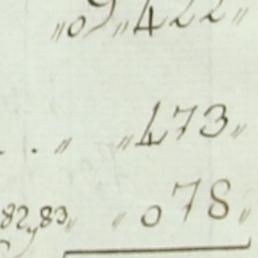 „09„422„
. . „ „473„
82,,83„ „ 078„